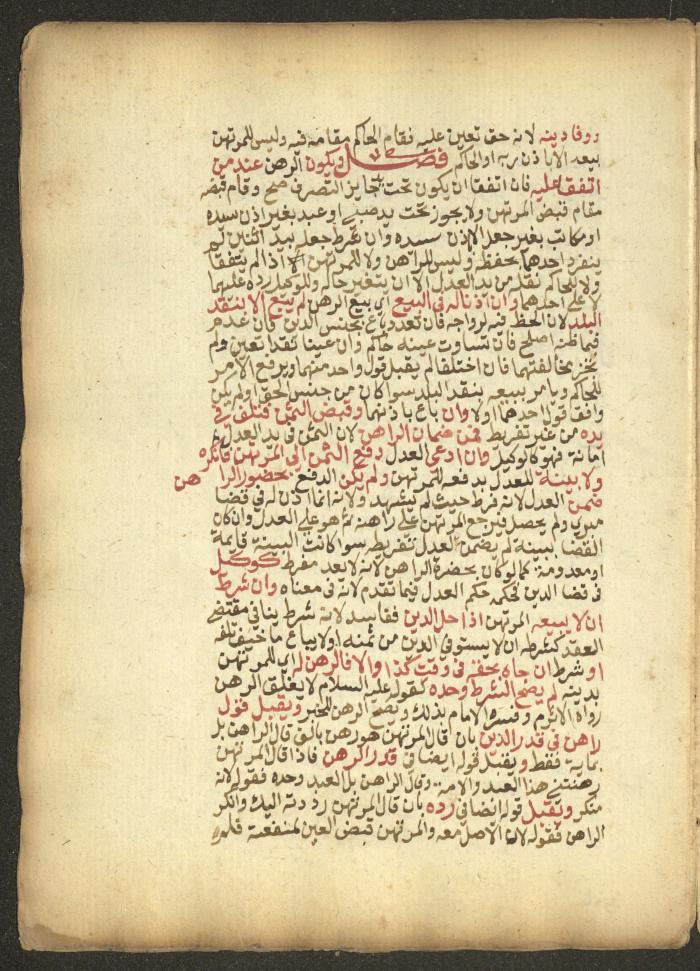 ووفا دينه لانه حق تعين عليه فقام الحاكم مقامه فيه وليس للمرتهن
بيعه الا باذن ربه او الحاكم فصل ويكون الرهن عند من
اتفقا عليه فان اتفقا ان يكون تحت يد جايز التصرف صح وقام قبضه
مقام قبض المرتهن ولا يجوز تحت يد صبي او عبد بغير اذن سيده
او مكاتب بغير جعل الا باذن سيده وان شرط جعله بيد اثنين لم
ينفرد احدهما بحفظه وليس للراهن ولا للمرتهن اذا لم يتفقا
ولا للحاكم نقله من يد العدل الا ان يتغير حاله وللوكيل رده عليهما
لا على احدهما وان اذنا له في البيع اي بيع الرهن لم يبع الا بنقد
البلد لان الحظ فيه لرواجه فان تعدد باع بجنس الدين فان عدم
فبما ظنه اصلح فان تساوت عينه حاكم وان عينا نقدا تعين ولم
تجز مخالفتهما فان اختلفا لم يقبل قول واحد منهما ويرفع الامر
للحاكم ويامر ببيعه بنقد البلد سوا كان من جنس الحق او لم يكن
وافق قول احدهما او لا وان باع باذنهما وقبض الثمن فتلف في
يده من غير تفريط فمن ضمان الراهن لان الثمن في يد العدل
امانة فهو كالوكيل وان ادعى العدل دفع الثمن الى المرتهن فانكره
ولا بينة للعدل بدفعه للمرتهن ولم يكن الدفع بحضور الراهن
ضمن العدل لانه فرط حيث لم يشهد ولانه انما اذن له في قضا
مبري ولم يحصل فيرجع المرتهن على راهنه ثم هو على العدل وان كان
القضا ببينة لم يضمن العدل تفريطه سوا كانت البينة قايمة
او معدومة كما لو كان بحضرة الراهن لانه لا يعد مفرطا كوكيل
في قضا الدين فحكمه حكم العدل فيما تقدم لانه في معناه وان شرط
ان لا يبيعه المرتهن اذا حل الدين ففاسد لانه شرط ينافي مقتضى
العقد كشرطه ان لا يستوفي الدين من ثمنه او لا يباع ما خيف تلفه
او شرط ان جاه بحقه في وقت كذا والا فالرهن له اي للمرتهن
بدينه لم يصح الشرط وحده لقوله عليه السلام لا يغلق الرهن
رواه الاثرم وفسره الامام بذلك ويصح الرهن للخبر ويقبل قول
راهن في قدر الدين بان قال المرتهن هو رهن بالف قال الراهن بل
بماية فقط ويقبل قوله ايضا في قدر الرهن فاذا قال المرتهن
رهنتني هذا العبد والامة وقال الراهن بل العبد وحده فقوله لانه
منكر ويقبل قوله ايضا في رده بان قال المرتهن رددته اليك وانكر
الراهن فقوله لان الاصل معه والمرتهن قبض العين لمنفعته فلم